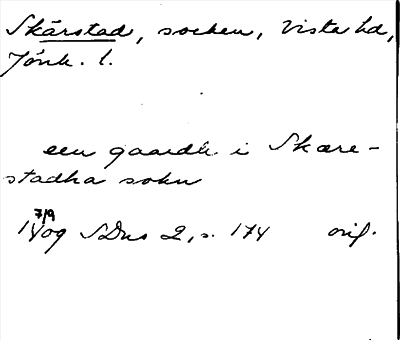 Skärstad, socken, Vista hd,
Jönk. l.
een gaardh i Skære-
stadha sokn
7/9
1409 SDns 2, s. 174 orig.